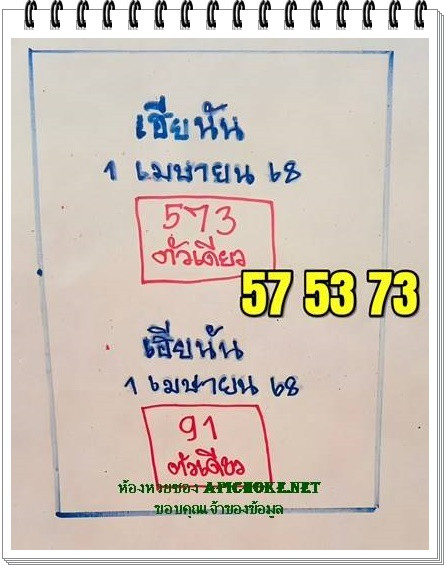 เฮียนัน
1 เมษายน 68
573
ตัวเดียว
57 53 73
เฮียนัน
1 เมษายน 68
91
ตัวเดียว
ห้องหวยซอง APICHOKE.NET
ขอบคุณเจ้าของข้อมูล